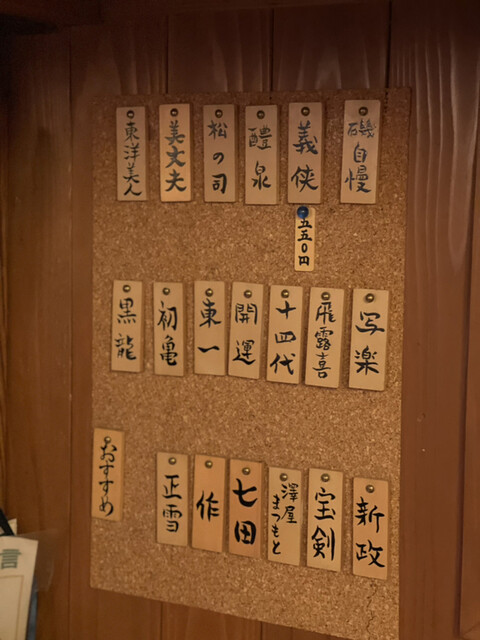 磯自慢
義侠
五五〇円
醴泉
松の司
美丈夫
東洋美人
写楽
飛露喜
十四代
開運
東一
初亀
黒龍
新政
宝剣
澤屋
まつもと
七田
作
正雪
おすすめ
言